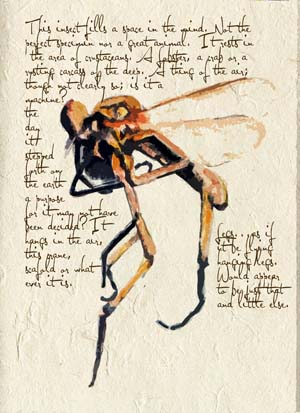 This insect fills a space in the mind. Not the
perfect specimen nor a great animal. It rests in
the area of crustaceans. A lobster, a crab or a
rusting carcass of the deep. A thing of the air;
though not clearly so; is it a
machine?
the
day
it
stepped
forth on
the earth
a purpose
for it may not have
been decided? It
hangs in the air,
this plane,
scafold or what
ever it is.
legs. if
it be flying
hanging legs.
Would appear
to be just that
and little else.